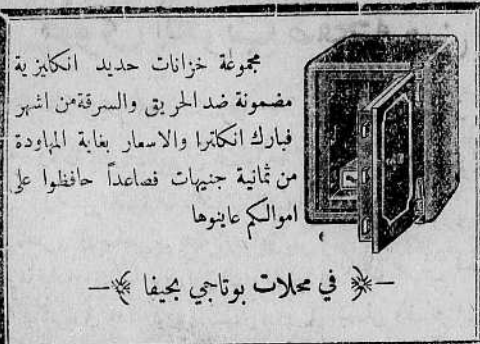 مجموعة خزانات حديد انكليزية
مضمونة ضد الحريق والسرقة من اشهر
فبارك انكلترا والاسعار بغاية المهاودة
من ثمانية جنيهات فصاعداً حافظوا على
اموالكم عاينوها
في محلات بوتاجي بحيفا